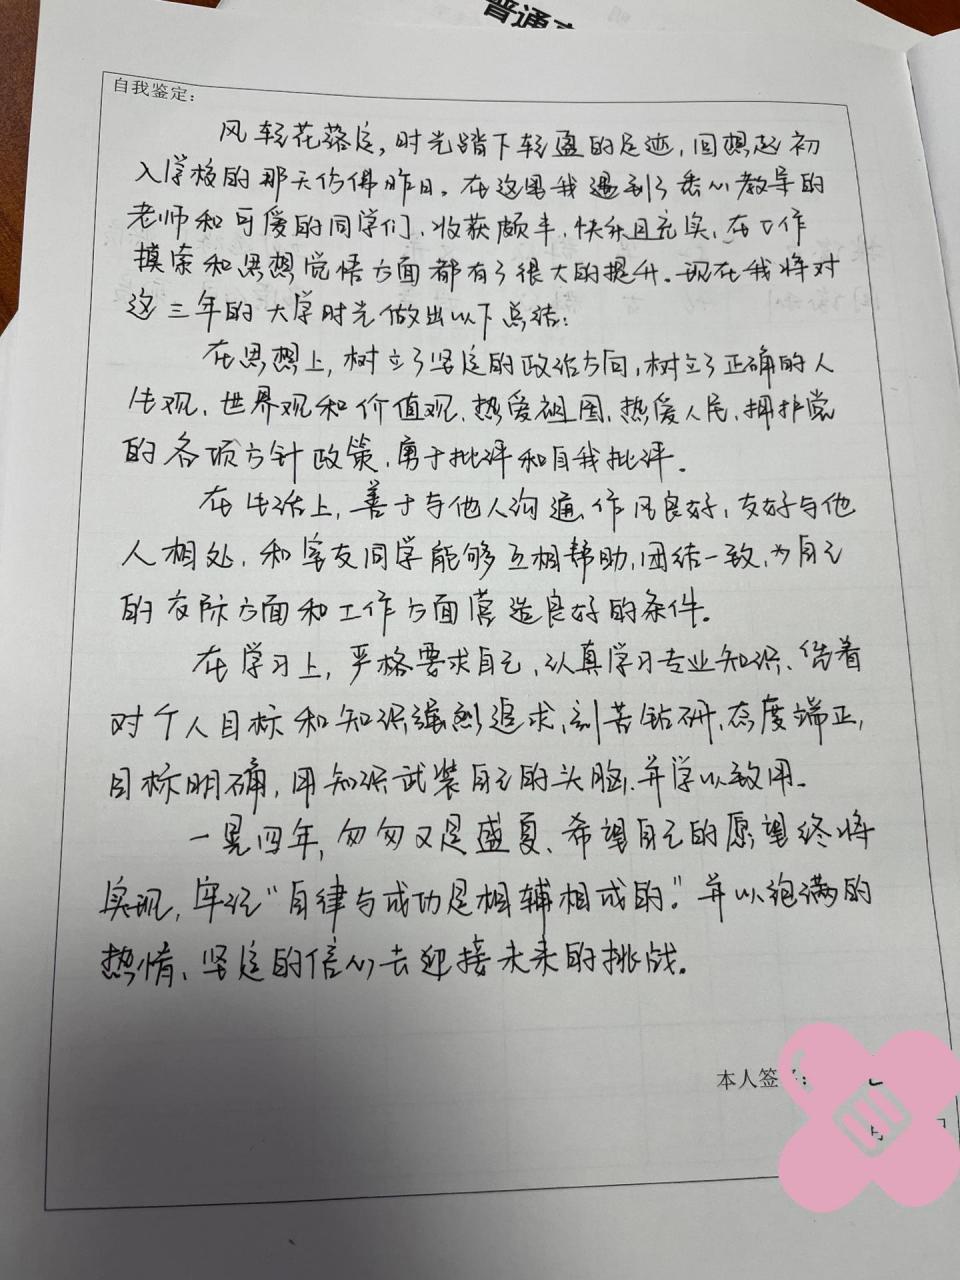 普通高
自我鉴定：
风轻花落定，时光踏下轻盈的足迹，回想起初
入学校的那天仿佛昨日。在这里我遇到了悉心教导的
老师和可爱的同学们，收获颇丰，快乐且充实，在工作
摸索和思想觉悟方面都有了很大的提升。现在我将对
这三年的大学时光做出以下总结：
在思想上，树立了坚定的政治方向，树立了正确的人
生观、世界观和价值观，热爱祖国，热爱人民，拥护党
的各项方针政策，勇于批评和自我批评。
在生活上，善于与他人沟通，作风良好，友好与他
人相处，和室友同学能够互相帮助，团结一致，为自己
的交际方面和工作方面营造良好的条件。
在学习上，严格要求自己，认真学习专业知识、借着
对个人目标和知识强烈追求，刻苦钻研，态度端正，
目标明确，用知识武装自己的头脑，并学以致用。
一晃四年，匆匆又是盛夏、希望自己的愿望终将
实现，牢记“自律与成功是相辅相成的。”并以饱满的
热情、坚定的信心去迎接未来的挑战。
本人签